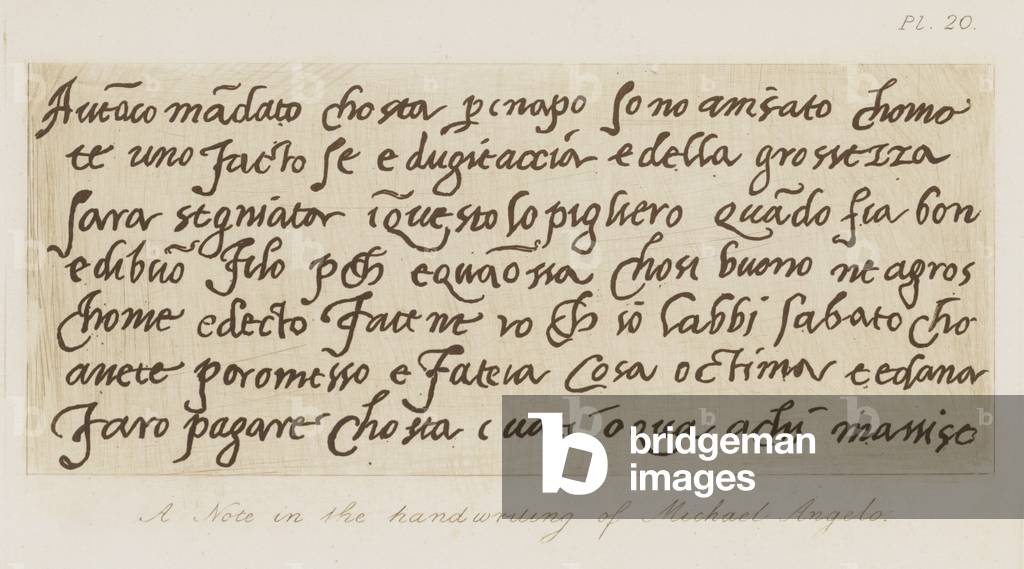 Pl. 20.
Autāco mādato chosta p inapo sono avisato chomo
te uno facto se e dugitaccia e della grossezza
sara segniator ī questo lo pigliero quādo fia bon
e di buō filo p ch e quāō ssa chosi buono ne agros
chome e decto fatene vo ch iō labbi sabato cho
avete poromesso e fateva cosa octima e edana
faro pagare chosta
bridgeman
images
A Note in the handwriting of Michael Angelo.